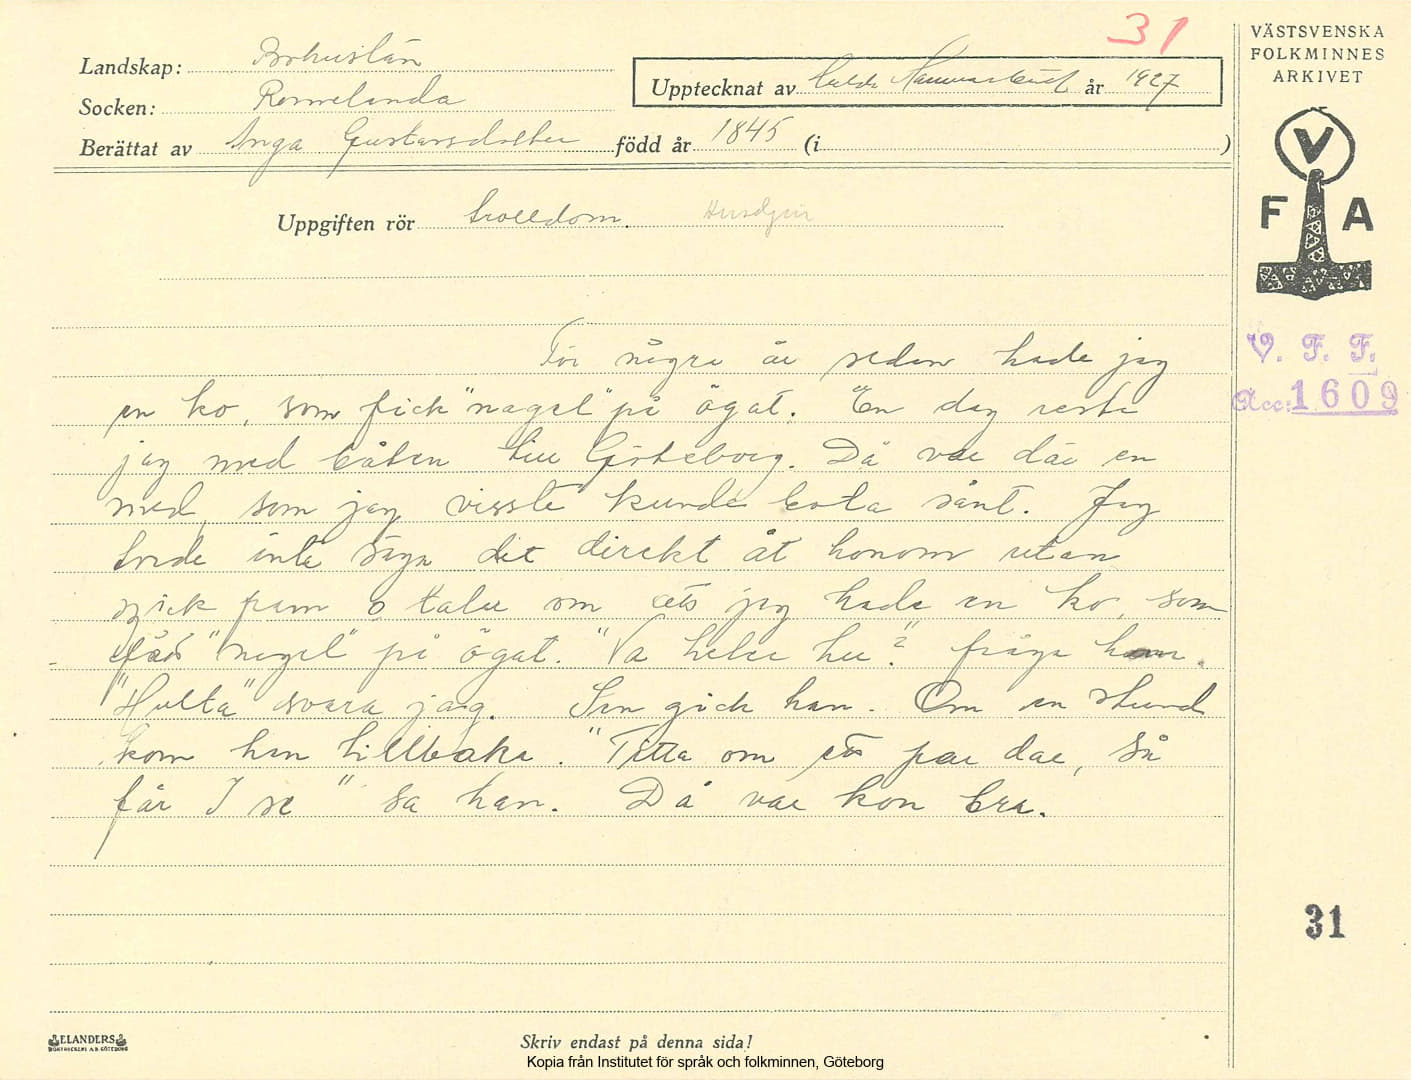 31
VÄSTSVENSKA
FOLKMINNES
ARKIVET
Landskap: Bohuslän
Upptecknat av år 1927
Socken: Romelanda
Berättat av Inga Gustavsdotter född år 1845 (i )
Uppgiften rör trolldom. Husdjur
V
F A
V. F. F.
Acc: 1609
För några år sedan hade jag
en ko, som fick "nagel" på ögat. En dag reste
jag med båten till Göteborg. Då var där en
med, som jag visste kunde bota sånt. Jag
torde inte säga det direkt åt honom utan
gick fram o talte om att jag hade en ko, som
fått "nagel" på ögat. "Va heler hu"? fråga han.
"Hulta" svara jag. Sen gick han. Om en stund
kom han tillbaka. "Titta om ett par dar, så
får I se" sa han. Då var kon bra.
31
ELANDERS
BOKTRYCKERI A.B. GÖTEBORG
Skriv endast på denna sida!
Kopia från Institutet för språk och folkminnen, Göteborg